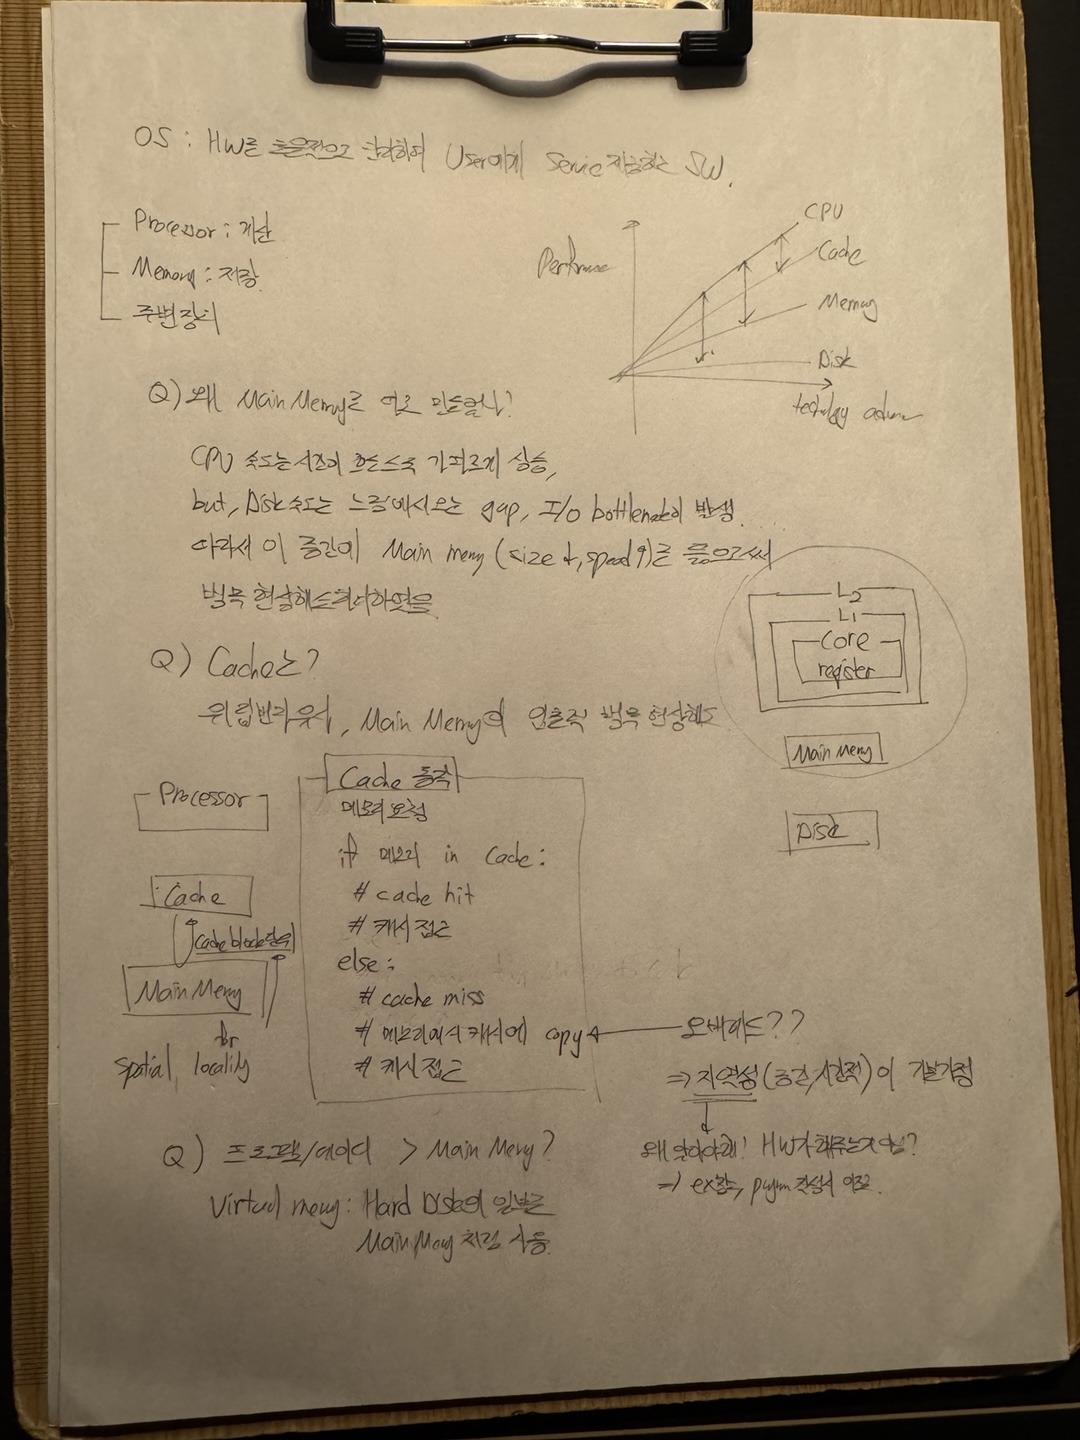 OS : HW를 효율적으로 관리하여 User에게 Service 제공하는 SW.
Processor : 계산
Memory : 저장
주변장치
CPU
Cache
Memory
Disk
Q) 왜 Main Memory로
CPU 속도는 시간이 흐를수록 가파르게 상승,
but, Disk 속도는 느림에서 오는 gap, I/O bottleneck이 발생.
따라서 이 중간에 Main memory (size ↓, speed ↑)를 둠으로써
병목 현상 해소
L2
L1
Core
register
Main Memory
Disk
Q) Cache는?
Main Memory의 병목 현상 해소
Processor
Cache
Cache block 단위
Main Memory
for
spatial locality
Cache 동작
메모리 요청
if 메모리 in Cache :
# cache hit
# 캐시 접근
else :
# cache miss
# 메모리에서 캐시에 copy
# 캐시 접근
오버헤드??
⇒ 지역성 (공간/시간적)이
왜 알아야해! HW가 해주는거 아님?
⇒ ex
Q) 프로그램/데이터 > Main Memory?
Virtual memory : Hard Disk의 일부를
Main Memory 처럼 사용